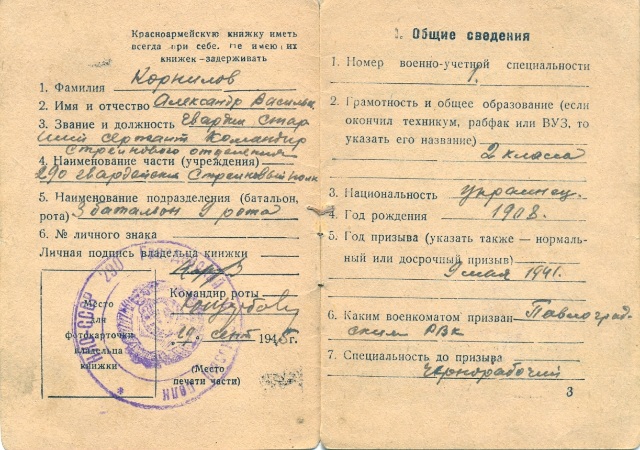 Красноармейскую книжку иметь
всегда при себе. Не имеющих
книжек - задерживать
1. Фамилия Корнилов
2. Имя и отчество Александр Василь
3. Звание и должность Гвардии стар
ший сержант Командир
стрелкового отделения
4. Наименование части (учреждения)
290 гвардейский Стрелковый полк
5. Наименование подразделения (батальон,
рота) 3 баталион 9 рота
6. № личного знака
Личная подпись владельца книжки
Командир роты
Место
для
фотокарточки
владельца
книжки
29. сент 1945г.
(Место
печати части)
НКО-СССР 290 ПОЛК
I. Общие сведения
1. Номер военно-учетной специальности
1.
2. Грамотность и общее образование (если
окончил техникум, рабфак или ВУЗ, то
указать его название)
2 класса
3. Национальность Украинец.
4. Год рождения 1908.
5. Год призыва (указать также — нормаль-
ный или досрочный призыв)
9 мая 1941.
6. Каким военкоматом призван Павлоград-
ским РВК
7. Специальность до призыва
Чернорабочий
3